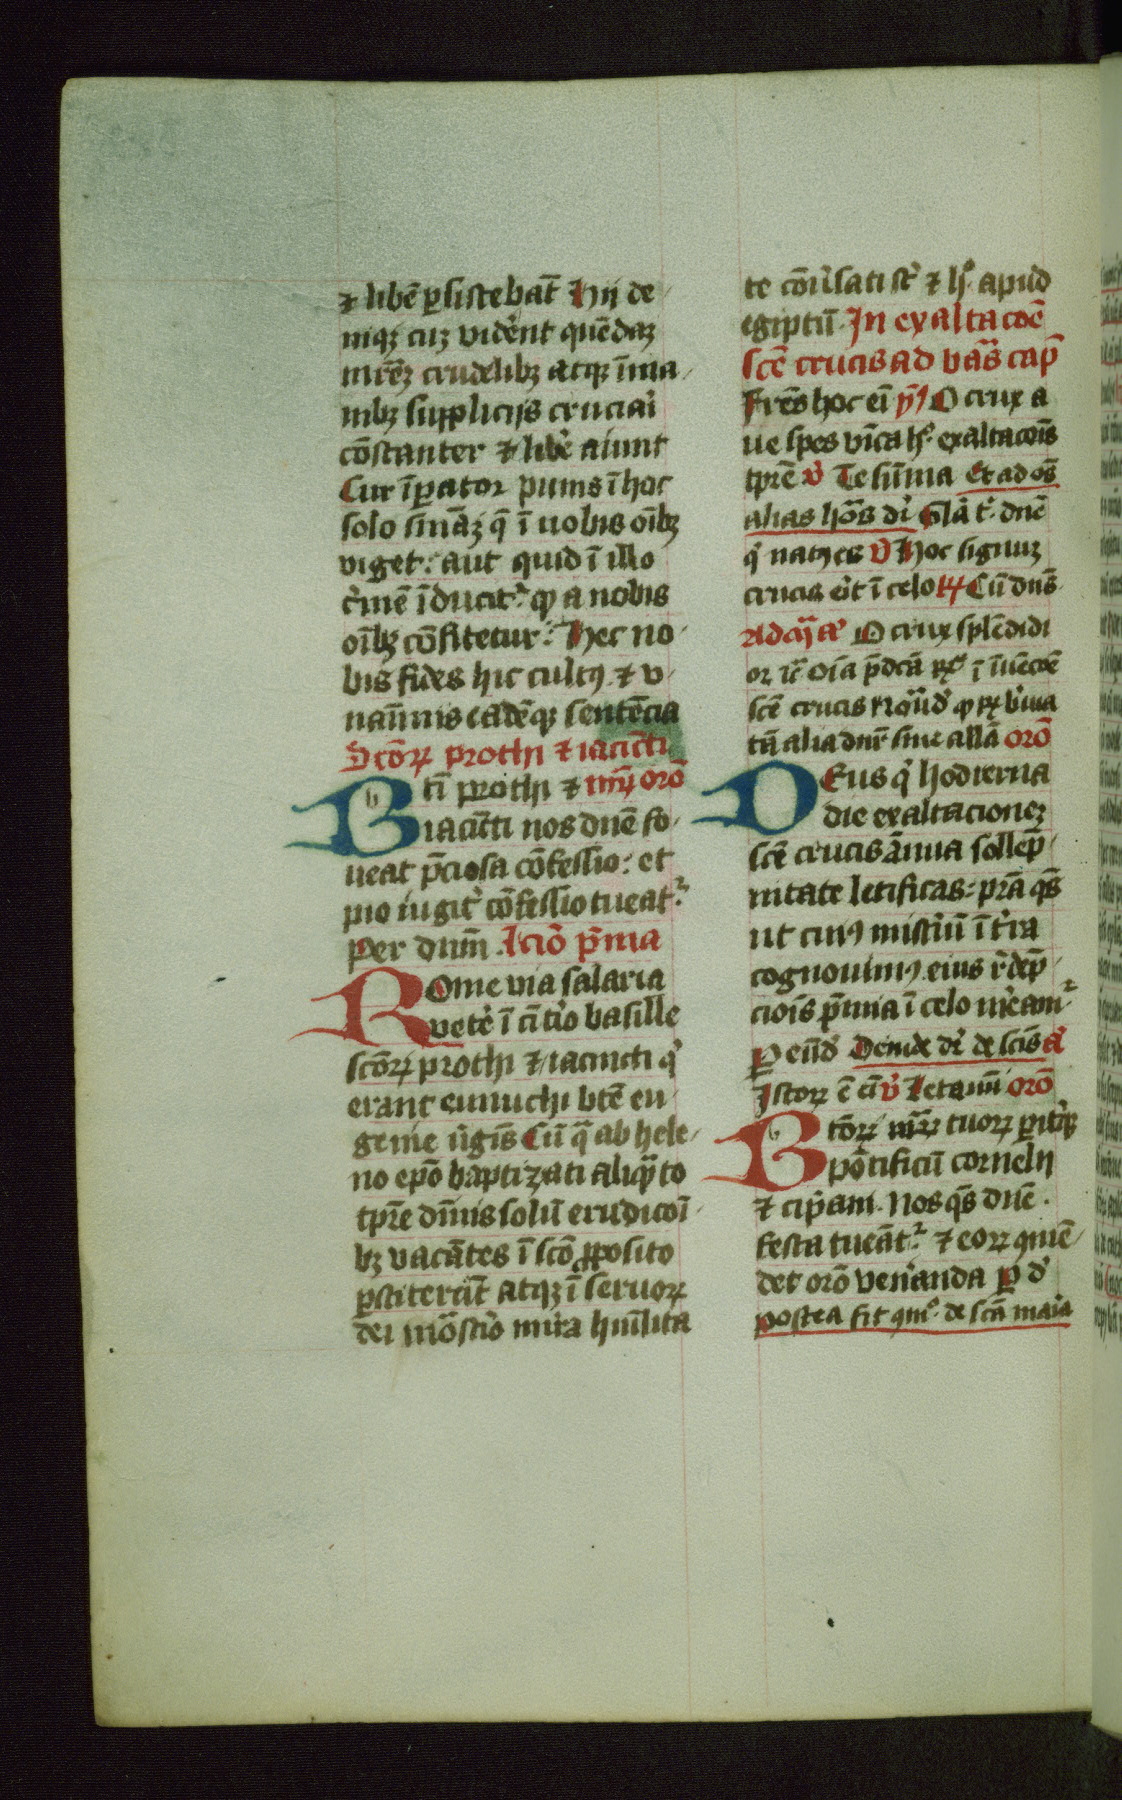 ⁊ libē ꝑsistebāt Hij de
niqꝫ cuꝫ vidēnt quēdaꝫ
mr̄ēꝫ crudelibꝫ atqꝫ īma
nibꝫ supplicijs cruciari
cōstanter ⁊ libē aiunt
Cur īꝑator punis ī hoc
solo sināꝫ q̄ ī uobis oībꝫ
viget: aut quid ī illo
īducit᷑ qꝫ a nobis
oībꝫ cōfitetur: Hec no
bis fides hic cultꝰ ⁊ v
nanimis eadēqꝫ sentēcia
Scōꝝ prothi ⁊ iacīcti
Bti prothi ⁊ mr̄ꝝ orō
iacīcti nos dn̄e fo
ueat p̄ciosa cōfessio: et
pio iugit᷑ cōfessio tueat᷑
Per dn̄m. Lcio p̄ma
Rome via salaria
vetē ī cīt̄io basille
scōꝝ prothi ⁊ iacincti qͥ
erant eunuchi btē eu
genie ūgīs Cū qͣ ab hele
no epō baptizati aliqͣto
tpr̄e dīnis solū erudicoī
bꝫ vacātes ī scō ꝓposito
ꝑstiterūt atqꝫ ī seruoꝝ
dei mōstio mira hūilita
te cōūsati st̄ ⁊ lꝫ apud
egiptū. In exaltacōe
scē crucis ad vās cap̄
Frēs hoc eī ym̄ O crux a
ue spes vīca hꝰ exaltacōis
tpr̄e v̄ Te sūma Et ad oēs
alias hōs di᷑ glā t᷑ dn̄e
qͥ natꝰ es v̄ Hoc signuꝫ
crucis ēit ī celo ℞ Cū dn̄s
Ad cꝫ ā O crux splēdidi
or ī īuēcōe
scē crucis
tū alia dn̄r sine allā orō
Deus qͥ hodierna
die exaltacioneꝫ
scē crucis ānua sollēp
nitate letificas: p̄ra qs̄
ut cuiꝰ mist̄iū ī t̄ra
cognouimꝰ eius r̄dēp
ciois p̄mia ī celo m̄eam᷑
ꝑ eūd̄ Deinde di᷑ de scīs ā
Istoꝝ ē eī v̄ Letamī orō
Btōꝝ mr̄ꝝ tuoꝝ
pōtificū cornelij
⁊ cip̄ani. Nos qs̄ dn̄e.
festa tueāt᷑ ⁊ eoꝝ ꝯmē
det orō ven̄anda ꝑ d̄
postea fit ꝯmͦ. de scā maīa